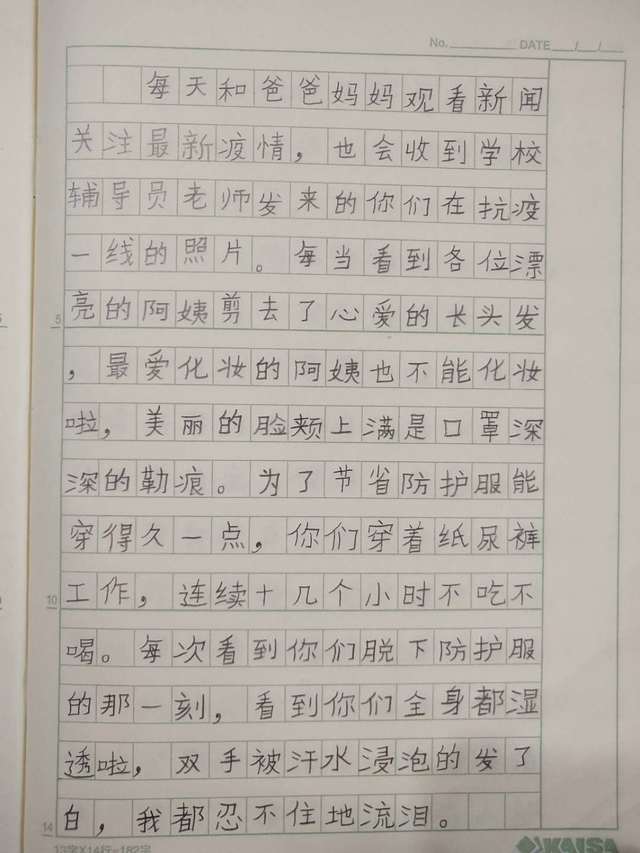 No. DATE / /
每天和爸爸妈妈观看新闻
关注最新疫情，也会收到学校
辅导员老师发来的你们在抗疫
一线的照片。每当看到各位漂
亮的阿姨剪去了心爱的长头发
5
，最爱化妆的阿姨也不能化妆
啦，美丽的脸颊上满是口罩深
深的勒痕。为了节省防护服能
穿得久一点，你们穿着纸尿裤
工作，连续十几个小时不吃不
10
喝。每次看到你们脱下防护服
的那一刻，看到你们全身都湿
透啦，双手被汗水浸泡的发了
白，我都忍不住地流泪。
14
13字X14行=182字
KAISA